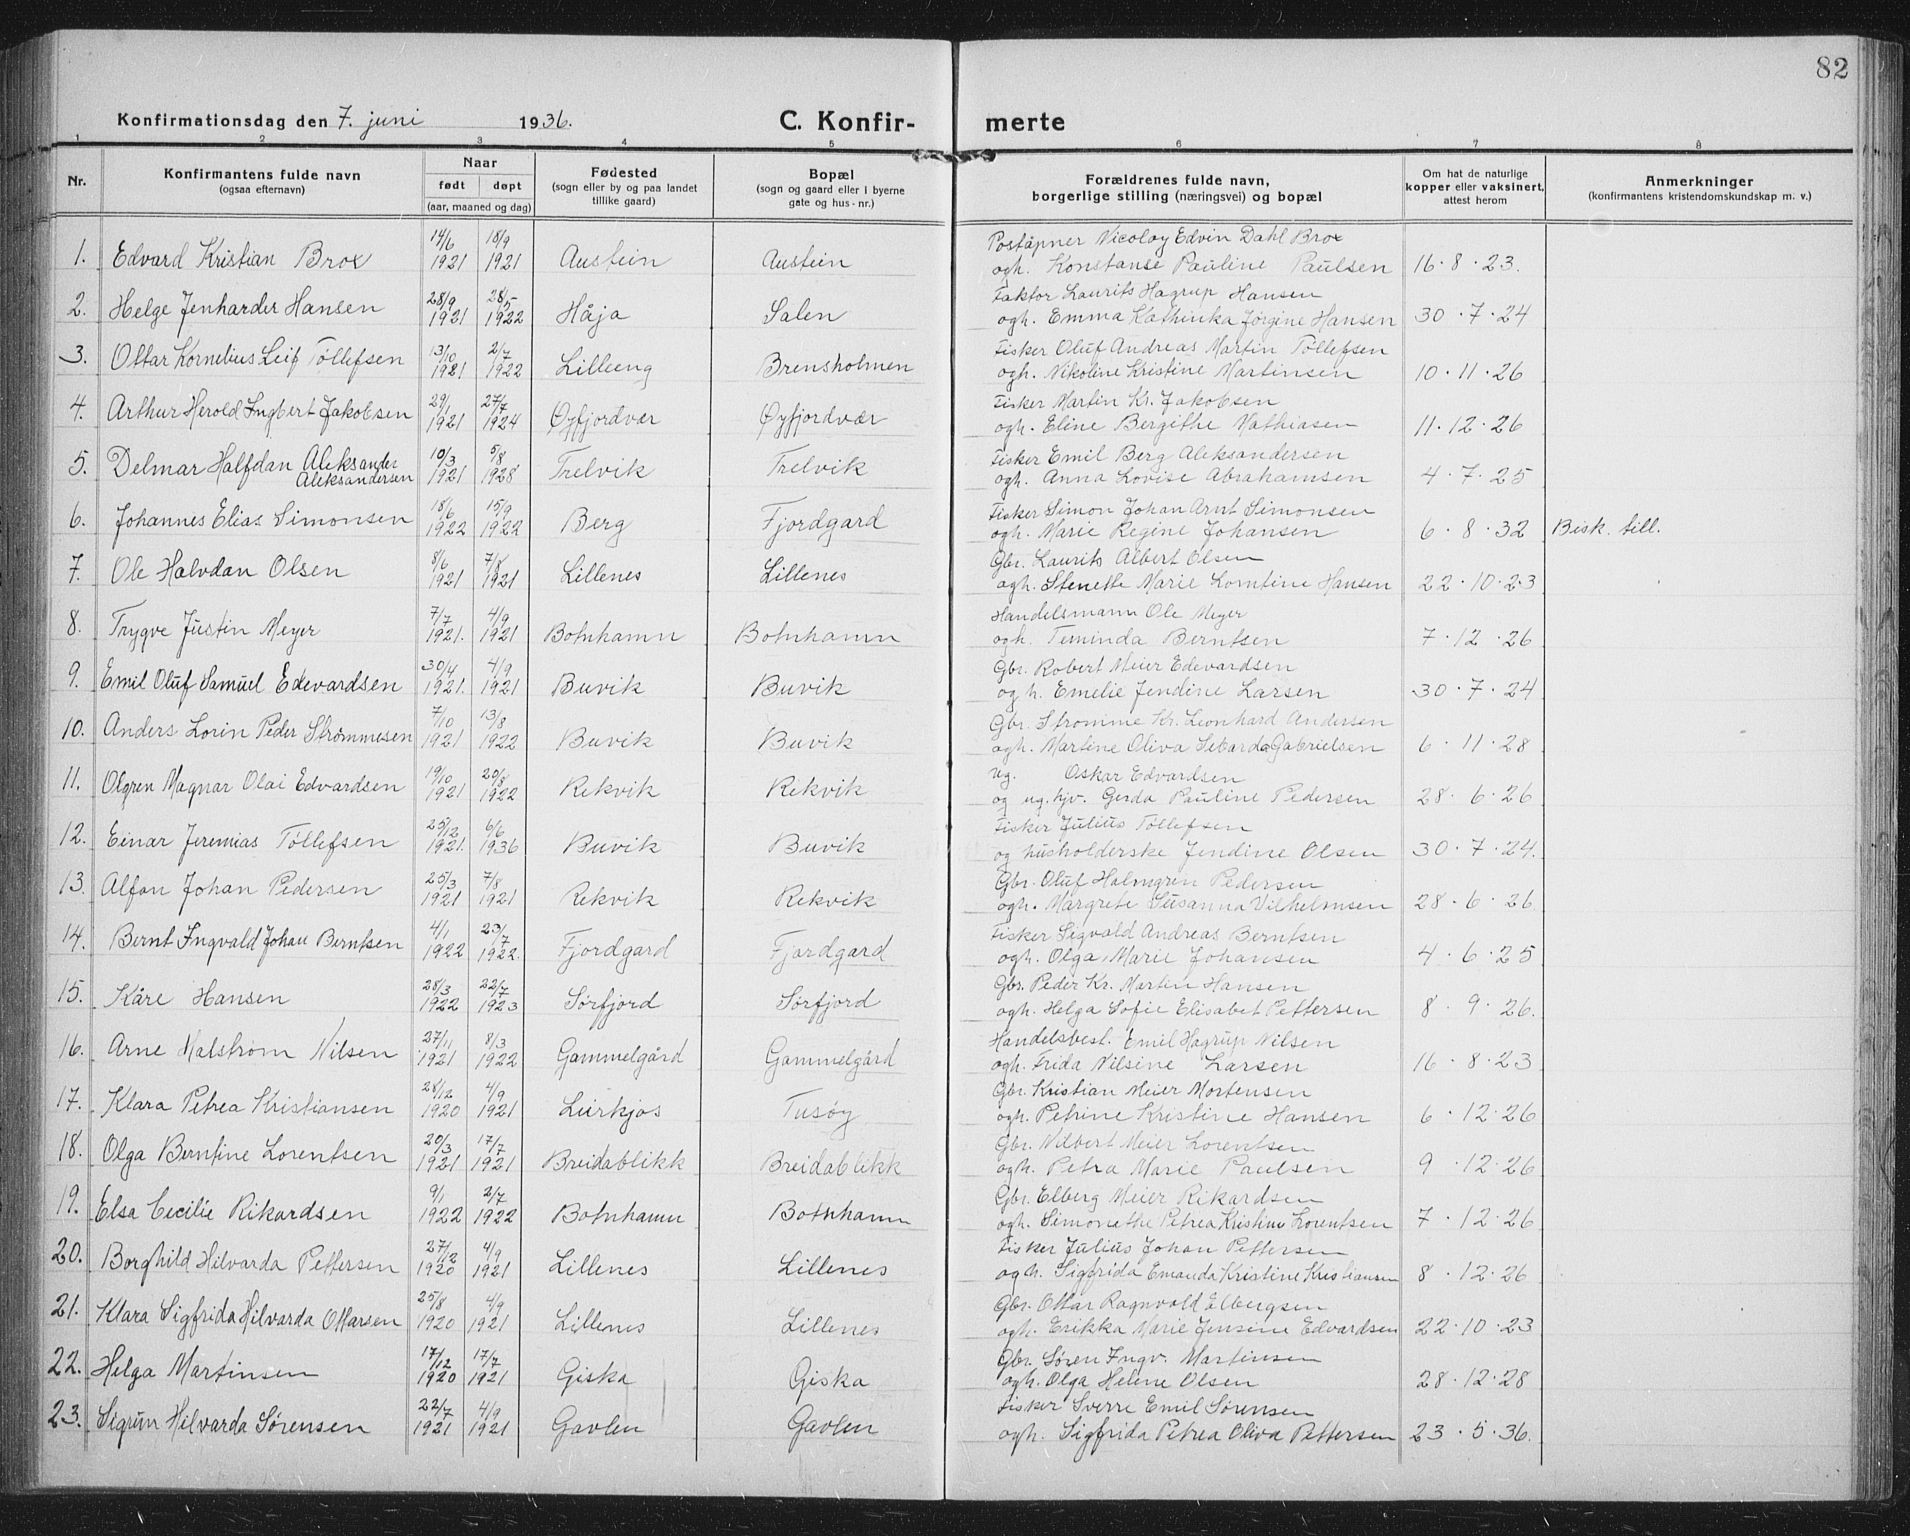 82
Konfirmationsdag den 7. juni 1936.
C. Konfir-merte
1 2 3 4 5 6 7 8
Nr.
Konfirmantens fulde navn
(ogsaa efternavn)
Naar
født døpt
(aar, maaned og dag)
Fødested
(sogn eller by og paa landet
tillike gaard)
Bopæl
(sogn og gaard eller i byerne
gate og hus-nr.)
Forældrenes fulde navn,
borgerlige stilling (næringsvei) og bopæl
Om hat de naturlige
kopper eller vaksinert,
attest herom
Anmerkninger
(konfirmantens kristendomskundskap m. v.)
14/6 18/9 Poståpner Nicolay Edvin Dahl Brox
1. Edvard Kristian Brox 1921 1921 Austein Austein ogh. Konstanse Pauline Paulsen 16.8.23.
28/9 28/5 Faktor Laurits Hagrup Hansen
2. Helge Jenharder Hansen 1921 1922 Håja Salen ogh. Emma Kathinka Jørgine Hansen 30.7.24
13/10 2/7 Fisker Oluf Andreas Martin Tøllefsen
3. Ottar Kornelius Leif Tøllefsen 1921 1922 Lilleeng Brensholmen ogh. Nikoline Kristine Martinsen 10.11.26
29/1 27/7 Fisker Martin Kr. Jakobsen
4. Arthur Herold Ingbert Jakobsen 1921 1924 Øyfjordvær Øyfjordvær ogh. Eline Bergithe Mathiasen 11.12.26
10/3 5/8 Fisker Emil Berg Aleksandersen
5. Delmar Halfdan Aleksander Aleksandersen 1921 1928 Trelvik Trelvik ogh. Anna Lovise Abrahamsen 4.7.25
18/6 15/9 Fisker Simon Johan Arnt Simonsen
6. Johannes Elias Simonsen 1922 1922 Berg Fjordgard ogh. Marie Regine Johansen 6.8.32 Bisk. till.
8/6 7/8 Gbr. Laurits Albert Olsen
7. Ole Halvdan Olsen 1921 1921 Lillenes Lillenes ogh. Stenette Marie Hansen 22.10.23
7/7 4/9 Handelsmann Ole Meyer
8. Trygve Justin Meyer 1921. 1921 Botnhamn Botnhamn ogh. Teminda Berntsen 7.12.26
30/4 4/9 Gbr. Robert Meier Edevardsen
9. Emil Oluf Samuel Edevardsen 1921. 1921 Buvik Buvik og h. Emelie Jendine Larsen 30.7.24
7/10 13/8 Gbr. Strømme Kr. Leonhard Andersen
10. Anders Lorin Peder Strømmesen 1921 1922 Buvik Buvik ogh. Martine Oliva Gabrielsen 6.11.28
19/10 20/8 ug. Oskar Edvardsen
11. Olgren Magnar Olai Edvardsen 1921 1922 Rekvik Rekvik og ug. hjv. Gerda Pauline Pedersen 28.6.26
25/12 6/6 Fisker Julius Tøllefsen
12. Einar Jeremias Tøllefsen 1921. 1936 Buvik Buvik og husholderske Jendine Olsen 30.7.24.
25/3 7/8 Gbr. Oluf Halmgren Pedersen
13. Alfon Johan Pedersen 1921 1921 Rekvik Rekvik ogh. Margrete Susanna Vilhelmsen 28.6.26
4/1 23/7 Fisker Sigvald Andreas Berntsen
14. Bernt Ingvald Johan Berntsen 1922 1922. Fjordgard Fjordgard ogh. Olga Marie Johansen 4.6.25
28/3 22/7 Gbr. Peder Kr. Martin Hansen
15. Kåre Hansen 1922 1923 Sørfjord Sørfjord ogh. Helga Sofie Elisabet Pettersen 8.9.26.
27/11 8/3 Handelsbest. Emil Hagrup Nilsen
16. Arne Malstrøm Nilsen 1921 1922 Gammelgård Gammelgård ogh. Frida Nilsine Larsen 16.8.23
28/12 4/9 Gbr. Kristian Meier Mortensen
17. Klara Petrea Kristiansen 1920 1921 Leirkjos Tusøy ogh. Petrine Kristine Hansen 6.12.26
20/3 17/7 Gbr. Vilbert Meier Lorentsen
18. Olga Berntine Lorentsen 1921 1921 Breidablikk Breidablikk ogh. Petra Marie Paulsen 9.12.26
9/1 2/7 Gbr. Elberg Meier Rikardsen
19. Elsa Cecilie Rikardsen 1922 1922 Botnhamn Botnhamn ogh. Simonethe Petrea Kristine Lorentsen 7.12.26
27/12 4/9 Fisker Julius Johan Pettersen
20. Borghild Hilvarda Pettersen 1920 1921 Lillenes Lillenes ogh. Sigfrida Emanda Kristine Kristiansen 8.12.26
25/8 4/9 Gbr. Ottar Ragnvald Elbergsen
21. Klara Sigfrida Hilvarda Ottarsen 1920 1921 Lillenes Lillenes ogh. Erikka Marie Jensine Edvardsen 22.10.23
17/12 17/7 Gbr. Søren Ingv. Martinsen
22. Helga Martinsen 1920 1921 Giska Giska ogh. Olga Helene Olsen 28.12.28
22/7 4/9 Fisker Sverre Emil Sørensen
23. Sigrun Hilvarda Sørensen 1921 1921 Gavlen Gavlen ogh. Sigfrida Petrea Oliva Pettersen 23.5.36.